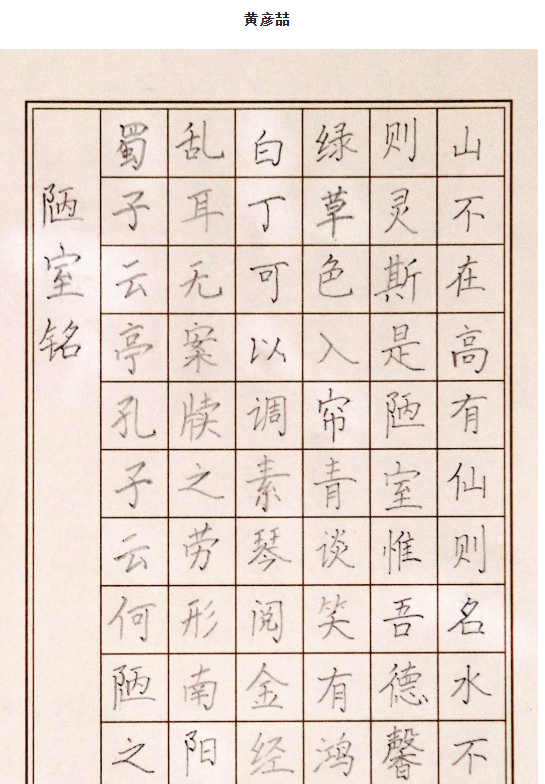 黄彦喆
山不在高有仙则名水不
则灵斯是陋室惟吾德馨
绿草色入帘青谈笑有鸿
白丁可以调素琴阅金经
乱耳无案牍之劳形南阳
蜀子云亭孔子云何陋之
陋室铭